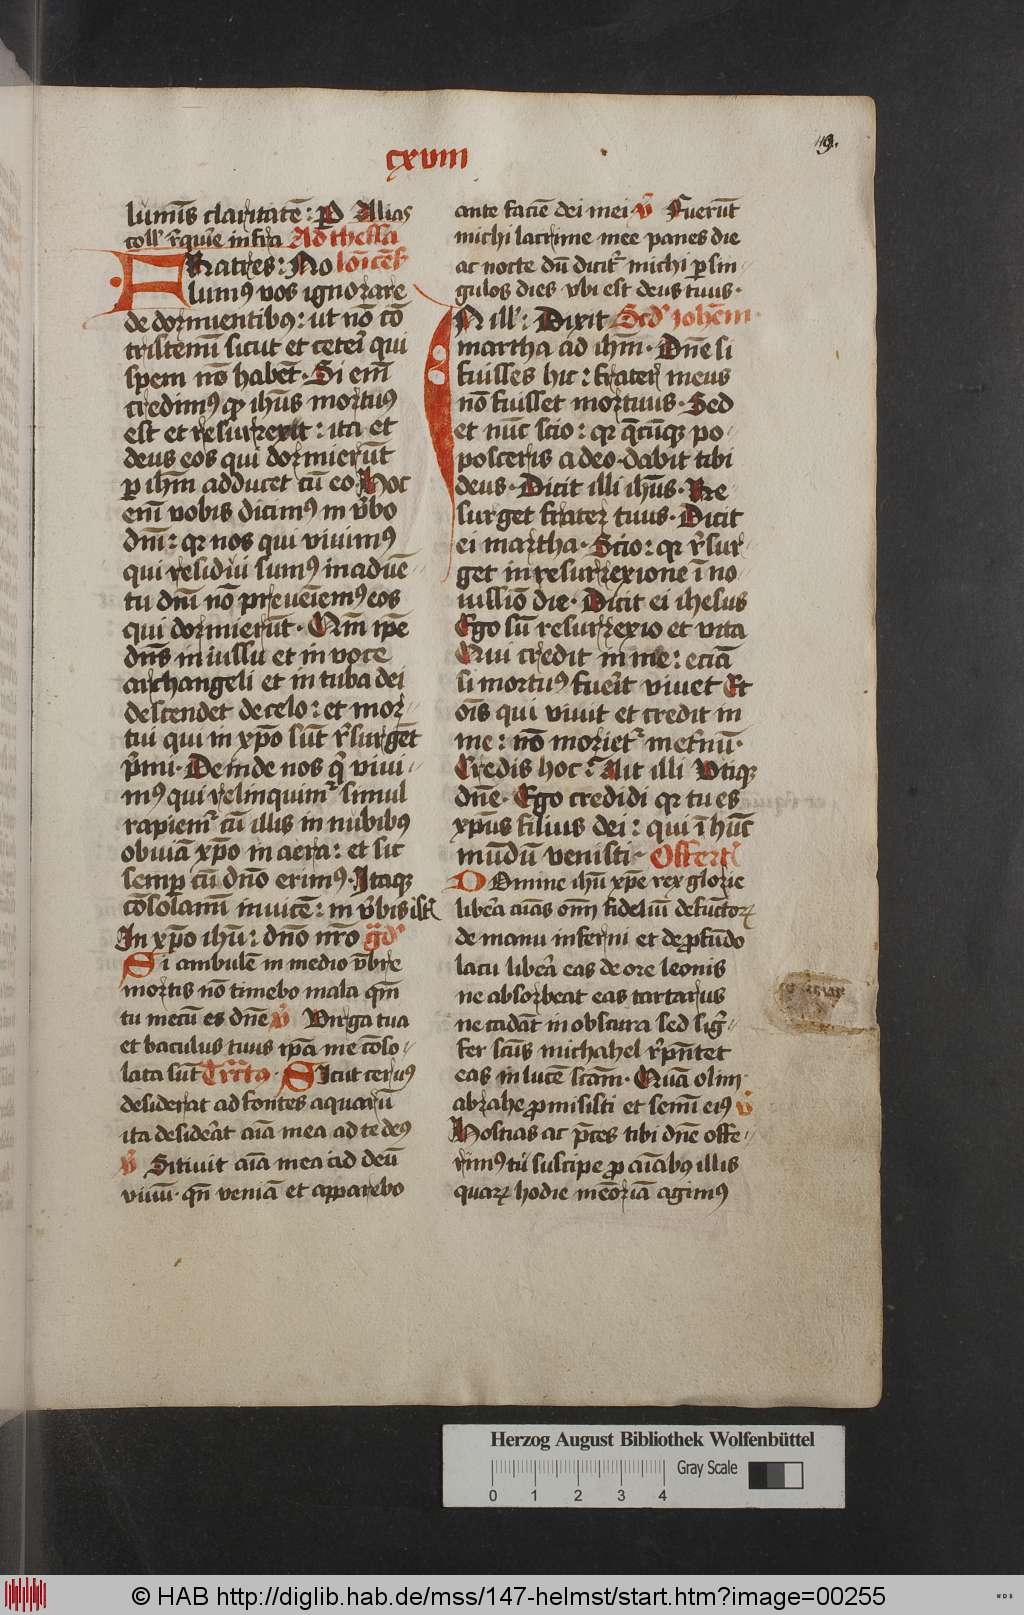 cxviii
119.
lumīs claritatē: P Alias
coll' rͣquīe infra Ad thessa
FRatres: No lonicēs
lumꝰ vos ignorare
de dormientibꝰ: ut nō cō
tristemī sicut et ceteī qui
spem nō habēt. Si eni̅
credimꝰ qꝫ ih̄us mortuꝰ
est et resurrexit: ita et
deus eos qui dormierūt
ꝑ ih̄m adducet cū eo. Hoc
eni̅ vobis dicimꝰ in v̄bo
dn̄i: qꝛ nos qui viuimꝰ
qui residui sumꝰ in aduē-
tu dn̄i nō preueīemꝰ eos
qui dormierūt. Qm̄ ip̄e
dn̄s in iussu et in voce
archangeli et in tuba dei
descendet de celo: et mor-
tui qui in xp̄o sūt rͥsurgēt
pͥmi. Deinde nos qͥ viui-
mꝰ qui relinquimͬ simul
rapiemͬ cū illis in nubibꝰ
obuiā xp̄o in aera: et sic
semꝑ cū dn̄o erimꝰ. Itaqꝫ
cōsolamī inuicē: in v̄bis istͥ
In xp̄o ih̄u: dn̄o nr̄o gͣdͫ
Si ambulē in medio vͫbre
mortis nō timebo mala qm̄
tu mecū es dn̄e v̄ Virga tua
et baculus tuus ip̄a me cōso-
lata sūt Trͣctꝰ. Sicut ceruꝰ
desiderat ad fontes aquarū
ita desiderāt aīa mea ad te deꝰ
v̄ Sitiuit aīa mea ad deū
viuū. qn̄ veniā et apparebo
ante faciē dei mei v̄ Fuerūt
michi lacrime mee panes die
ac nocte dū dicitͬ michi ꝑ sin-
gulos dies vbi est deus tuus.
IN ill': Dixit Scdͫ iohēm
martha ad ih̄m. Dn̄e si
fuisses hic: frater meus
nō fuisset mortuus. Sed
et nūc scio: qꝛ qͣcūqꝫ po-
posceris a deo. dabit tibi
deus. Dicit illi ih̄us. Re-
surget frater tuus. Dicit
ei martha. Scio: qꝛ rͥsur-
get in resurrexione ī no-
uissiō die. Dicit ei ihesus
Ego sū resurrexio et vita
Qui credit in me: eciā
si mortuꝰ fueīt viuet Et
oīs qui viuit et credit in
me: nō morietͬ in et̄nū.
Credis hoc? Ait illi Vtiqꝫ
dn̄e. Ego credidi qꝛ tu es
xp̄us filius dei: qui ī hūc
mūdū venisti. Offertͥ
Domine ih̄u xp̄e rex glorie
liberͣ aīas om̄ fideliū defūctorꝫ
de manu inferni et de ꝓfūdo
lacu liberͣ eas de ore leonis
ne absorbeat eas tartarus
ne cadāt in obscura sed sigͥ-
fer sc̄us michahel rͥpn̄tet
eas in lucē sc̄am. Quā olim
abrahe ꝓmisisti et semī eiꝰ v̄
Hostias ac p̄ces tibi dn̄e offe-
rimꝰ tu suscipe ꝓ aīabꝰ illis
quarꝫ hodie mēoriā agimꝰ
Herzog August Bibliothek Wolfenbüttel
Gray Scale
0 1 2 3 4
© HAB http://diglib.hab.de/mss/147-helmst/start.htm?image=00255